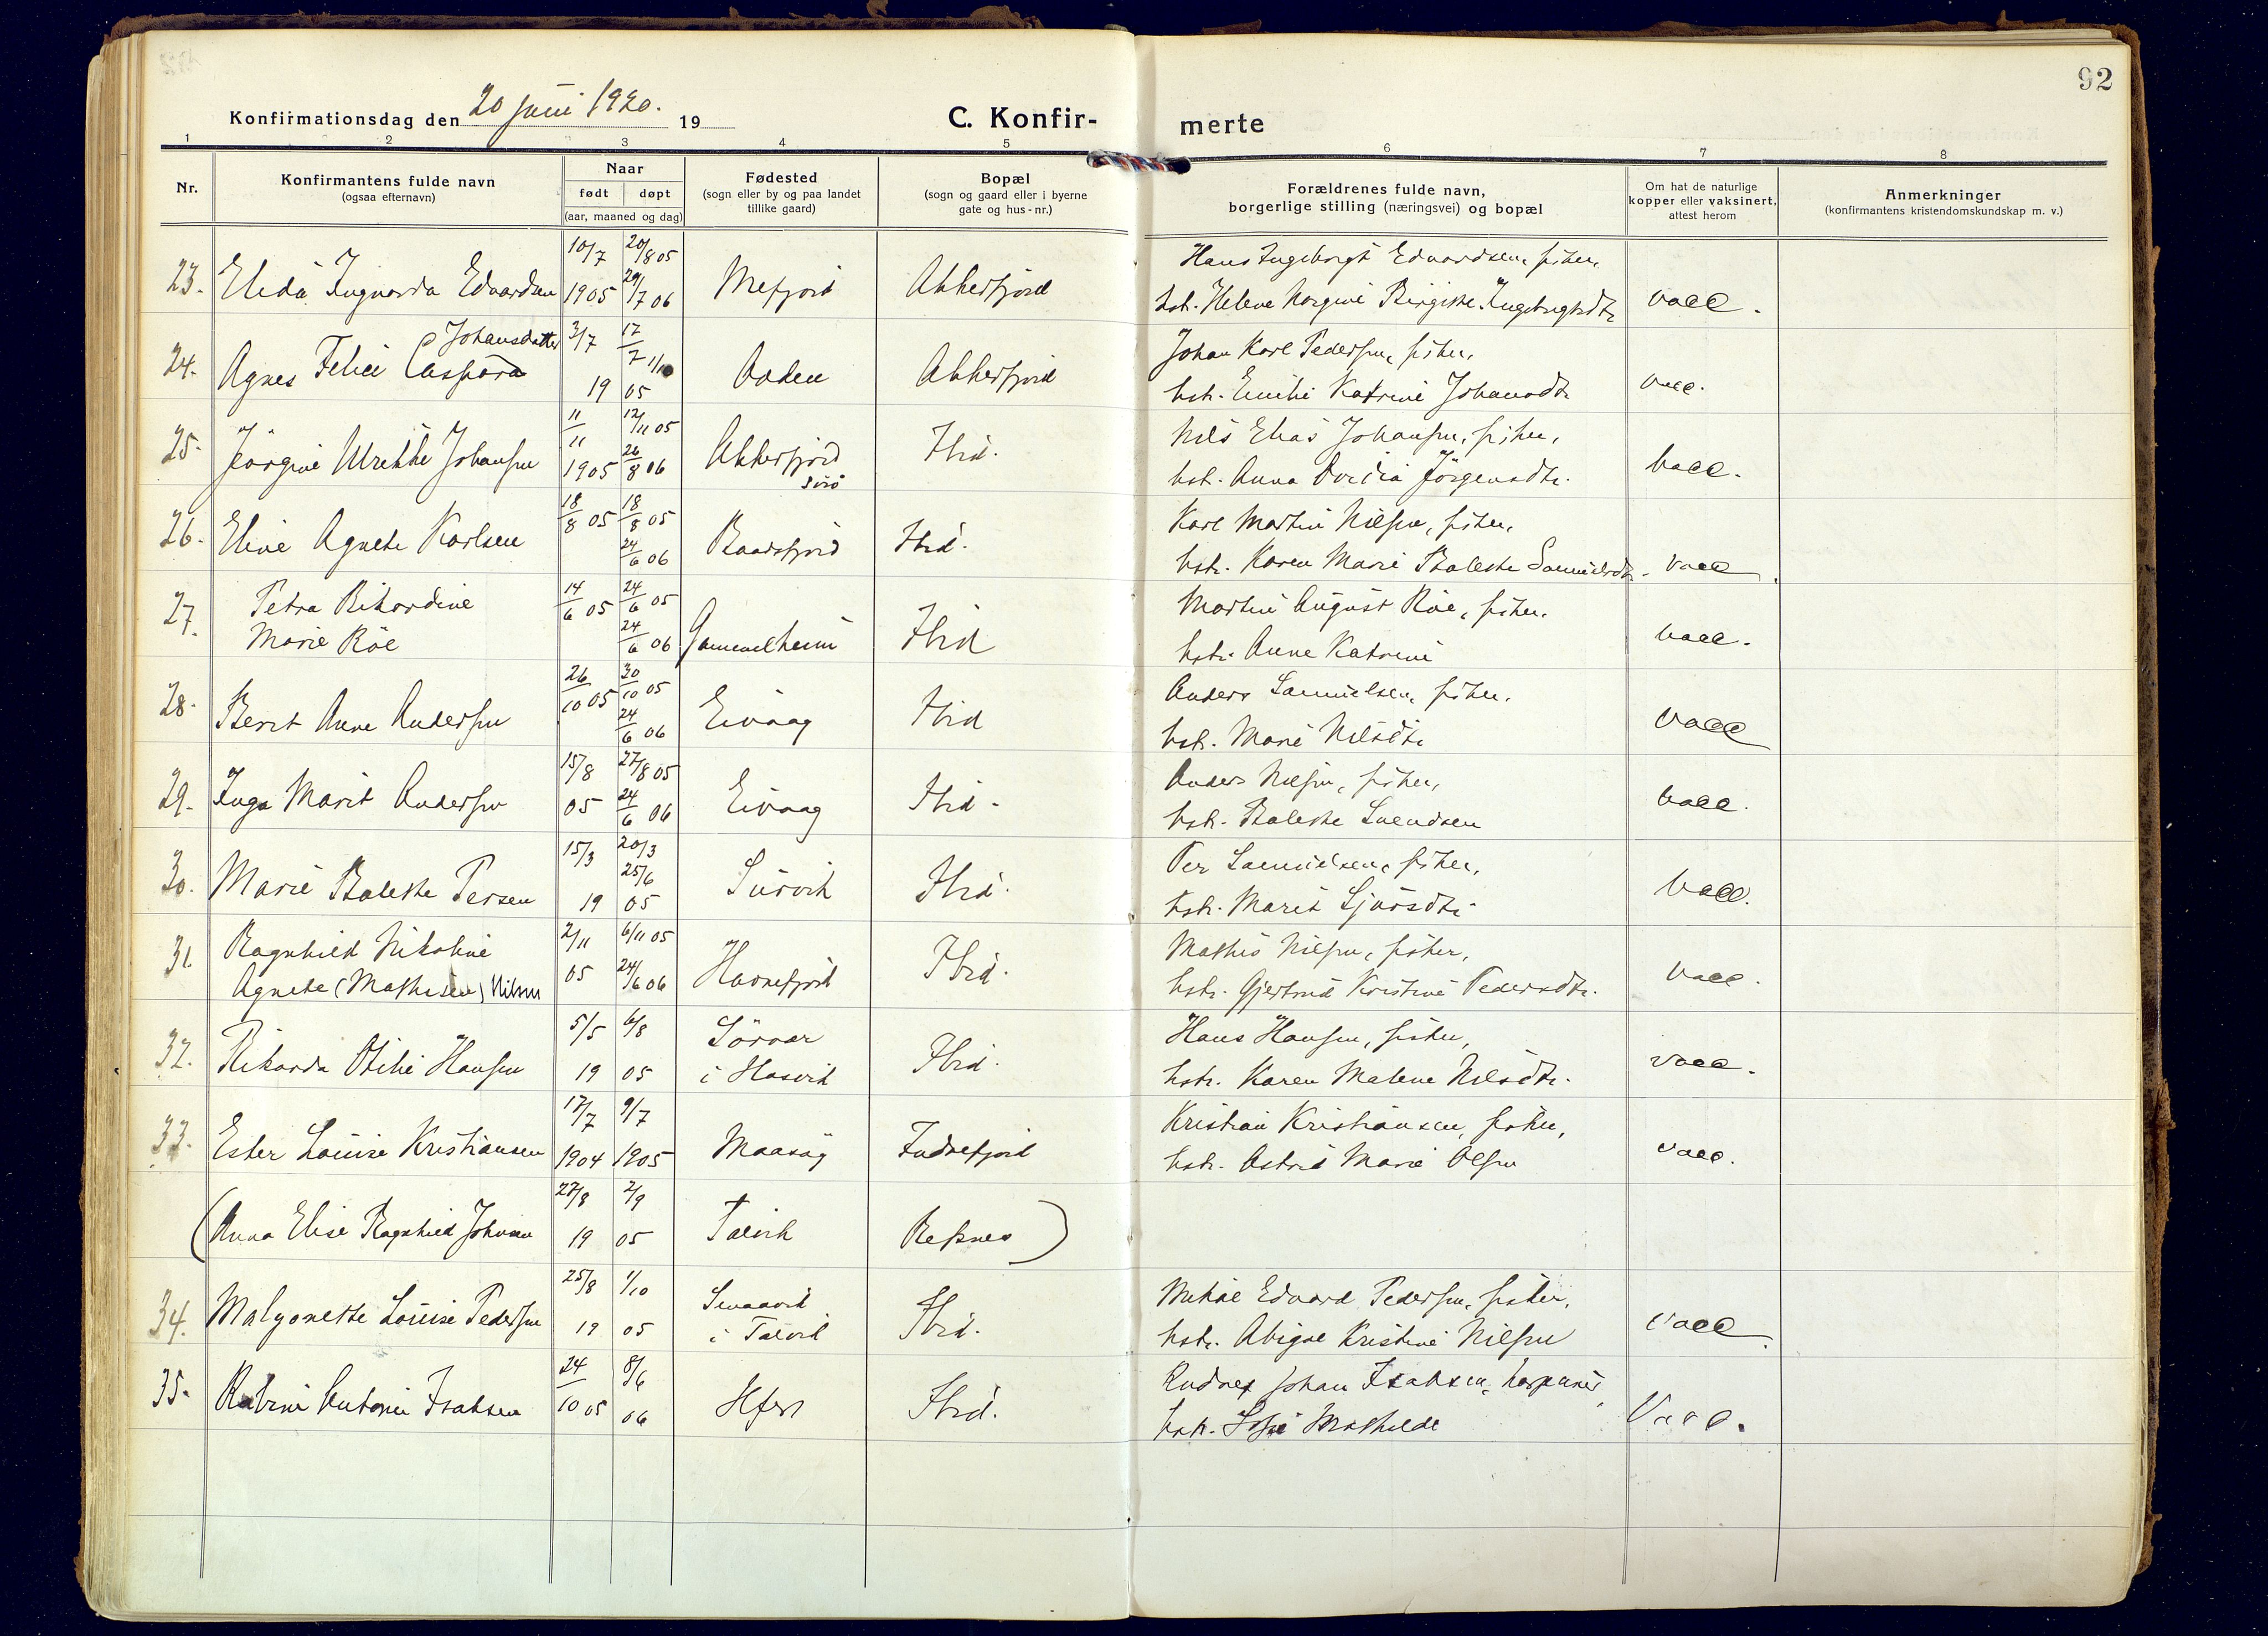 92
Konfirmationsdag den 20 juni 1920. 19
C. Konfir-
merte
1 2 3 4 5 6 7 8
Nr.
Konfirmantens fulde navn
(ogsaa efternavn)
Naar
født døpt
(aar, maaned og dag)
Fødested
(sogn eller by og paa landet
tillike gaard)
Bopæl
(sogn og gaard eller i byerne
gate og hus-nr.)
Forældrenes fulde navn,
borgerlige stilling (næringsvei) og bopæl
Om hat de naturlige
kopper eller vaksinert,
attest herom
Anmerkninger
(konfirmantens kristendomskundskap m. v.)
10/7 20/8 05 Hans Ingebrigt Edvardsen, fisker,
23. Elida Ingvarda Edvardsen 1905 29/7 06 Mefjord Akkerfjord hstr. Helene Norgine Birgitte Ingebrigtsdtr vacc.
Johansdatter 3/7 17/7 1/10 Johan Karl Pedersen, fisker,
24. Agnes Felicie Caspara 19 05 Aaden Akkerfjord hstr. Emilie Katrine Johansdtr vacc.
11/11 12/11 05 Nils Elias Johansen, fisker,
25. Jörgine Ulrikke Johansen 1905 26/8 06 Akkerfjord Ibid. hstr. Anna Dordia Jörgensdtr. vacc.
Sörö
18/8 05 18/8 05 Karl Martin Nilsen, fisker,
26. Eline Agnete Karlsen 24/6 06 Baadsfjord Ibid. hstr. Karen Marie Baletta Samuelsdtr. vacc.
27. Petra Rikardine 14/6 05 24/6 05 Martin August Röe, fisker.
Marie Röe 24/6 06 Gammelheim Ibid hstr. Anne Katrine vacc.
26/10 05 30/10 05 Anders Samuelsen, fisker.
28. Berit Anne Andersen 24/6 06 Eivaag Ibid hstr. Marie Nilsdtr vacc
15/8 27/8 05 Anders Nilsen, fisker,
29. Inga Marit Andersen 05 24/6 06 Eivaag Ibid. hstr. Balette Svendsen vacc.
15/3 20/3 25/6 Per Samuelsen, fisker,
30. Marie Balette Persen 19 05 Survik Ibid. hstr. Marit Sjursdtr vacc.
31. Ragnhild Nikoline 2/11 6/11 05 Mathis Nilsen, fisker,
Agnete (Mathisen) Nilsen 05 24/6 06 Havnefjord Ibid. hstr. Gjertrud Kristine Pedersdtr. vacc.
5/5 6/8 Sörvær Hans Hansen, fisker,
32. Rikarda Otilie Hansen 19 05 i Hasvik Ibid. hstr. Karen Malene Nilsdtr. vacc.
17/7 9/7 Kristian Kristiansen, fisker,
33. Ester Louise Kristiansen 1904 1905 Maasøy Indrefjord hstr. Astrid Marie Olsen vacc.
27/8 2/9
(Anna Elise Ragnhild Johnsen 19 05 Talvik Refsnes)
25/8 1/10 Mikal Edvard Pedersen, fisker,
34. Malyonette Louise Pedersen 19 05 i Talvik Ibid. hstr. Abigal Kristine Nilsen vacc.
24/10 05 8/6 Johan Isaksen,
35. Katrine Antonie Isaksen 06 Hfest Ibid. hstr. Sofie Mathilde Vacc.